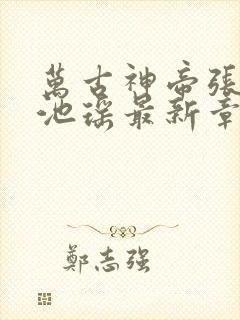 萬古神帝張
池瑤最新章
鄭志强